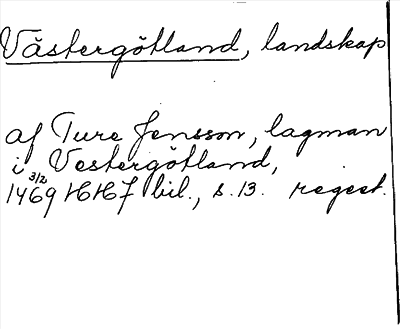 Västergötland, landskap
af Ture Jensson, lagman
i Vestergötland,
1469 3/2 HH7 bil., s. 13. regest.